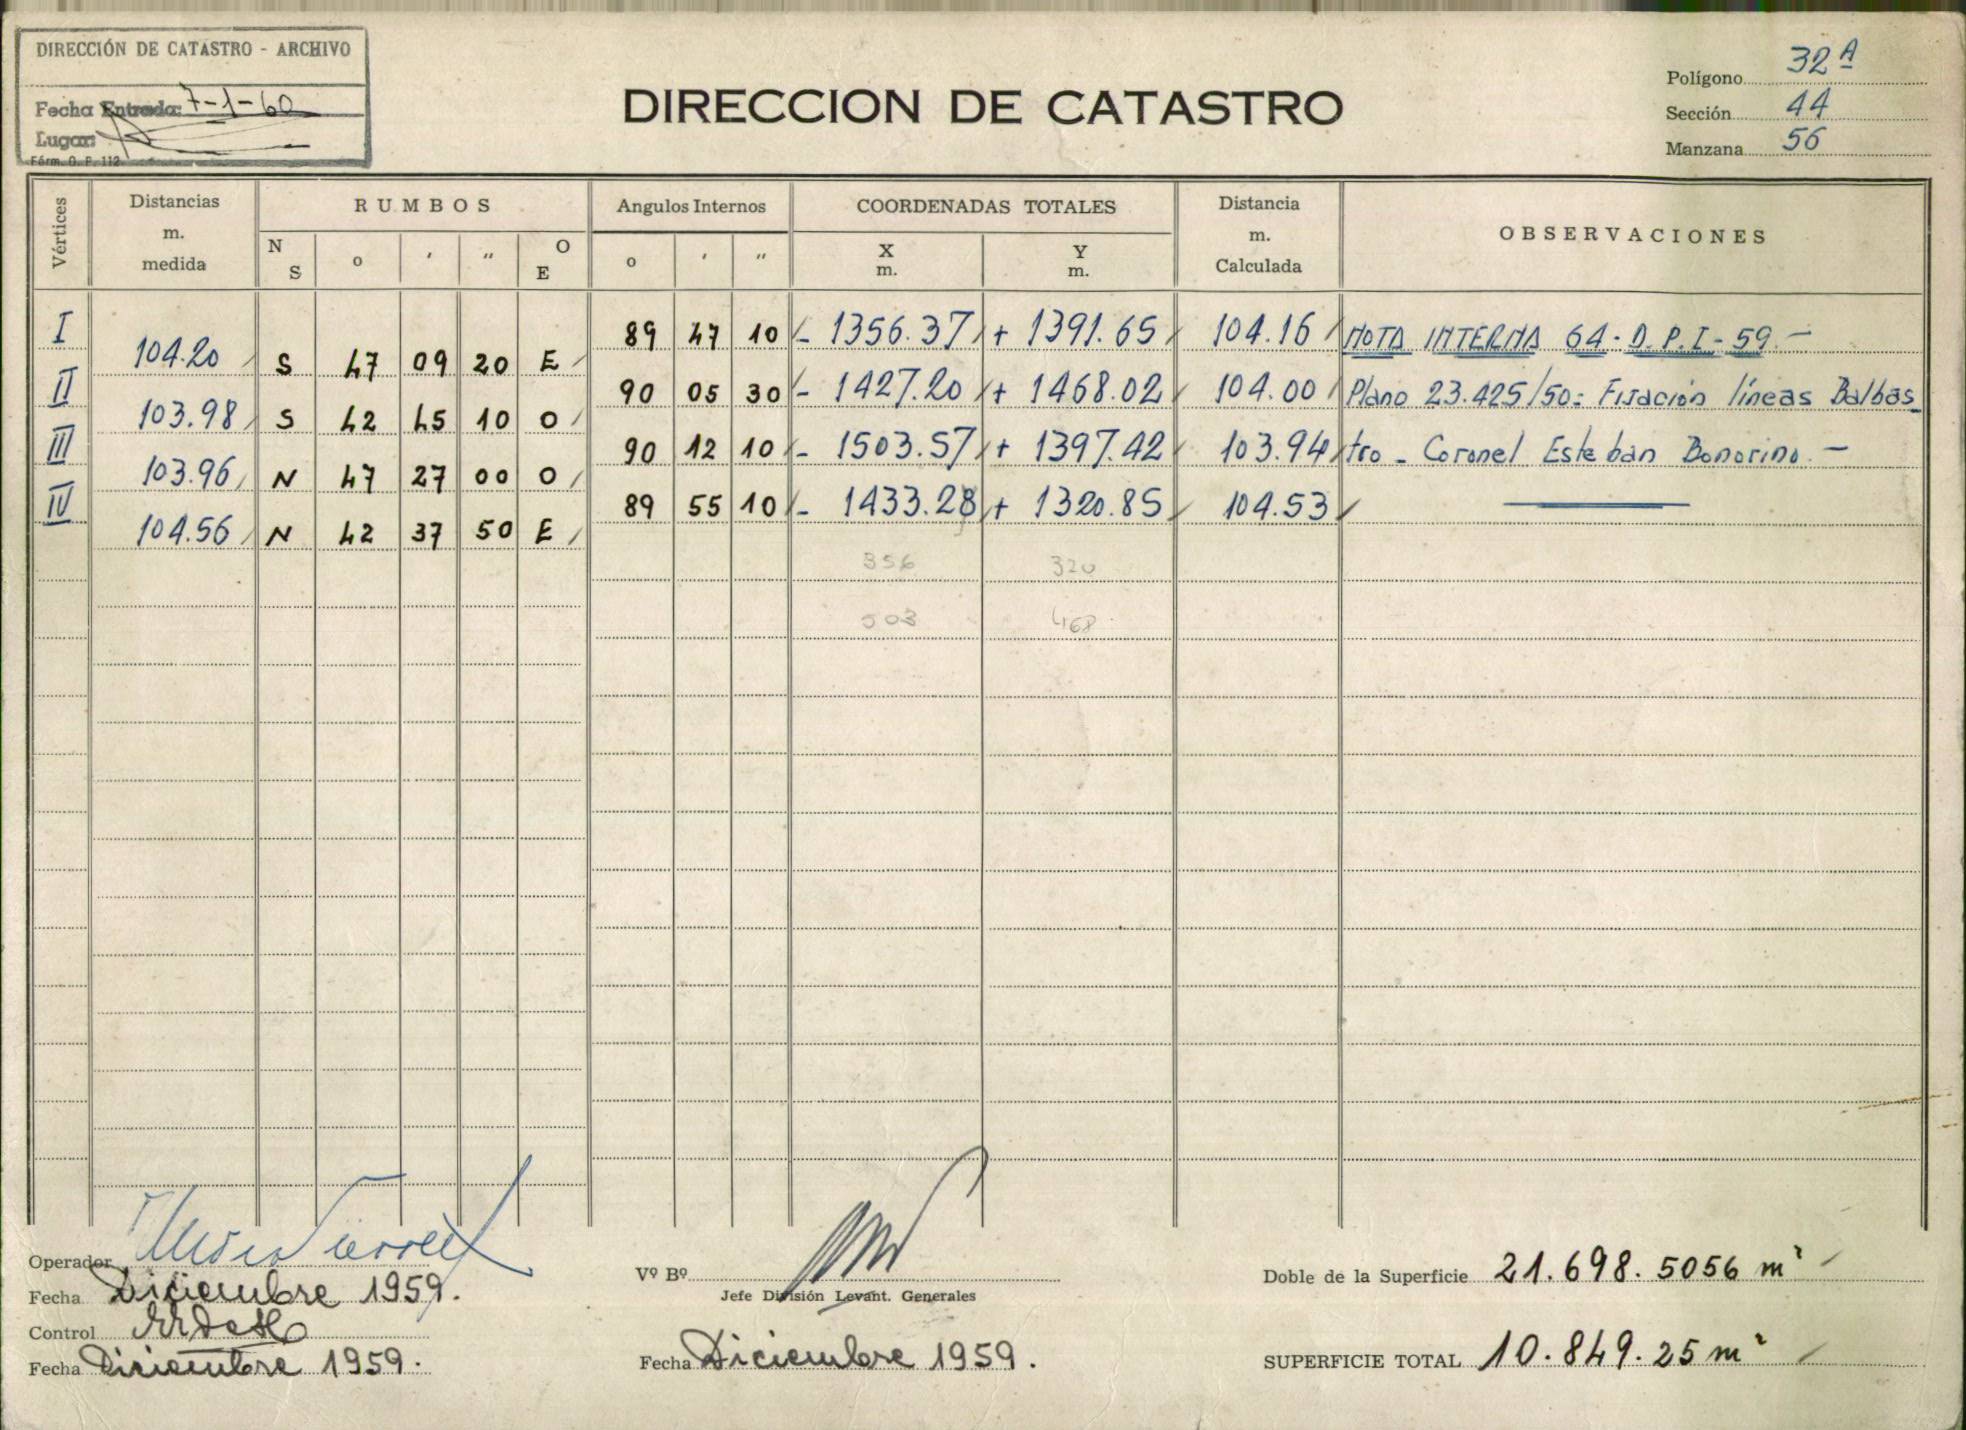 DIRECCIÓN DE CATASTRO - ARCHIVO
Fecha Entrada: 7-1-60
Lugar:
Fórm. O. P. 112
DIRECCION DE CATASTRO
Polígono 32 A
Sección 44
Manzana 56
Vértices
Distancias m. medida
RUMBOS
N S
o
'
"
O E
Angulos Internos
o
'
"
COORDENADAS TOTALES
X m.
Y m.
Distancia m. Calculada
OBSERVACIONES
I 89 47 10 - 1356.37 + 1391.65 104.16 NOTA INTERNA 64-D.P.I-59.-
104.20 S 47 09 20 E
II 90 05 30 - 1427.20 + 1468.02 104.00 Plano 23.425/50: Fijación líneas Balbas
103.98 S 42 45 10 O
III 90 12 10 - 1503.57 + 1397.42 103.94 tro - Coronel Esteban Bonorino.-
103.96 N 47 27 00 O
IV 89 55 10 - 1433.28 + 1320.85 104.53
104.56 N 42 37 50 E
356 320
503 468
Operador
Fecha Diciembre 1959.
Control
Fecha Diciembre 1959.
Vº Bº
Jefe División Levant. Generales
Fecha Diciembre 1959.
Doble de la Superficie 21.698.5056 m²
SUPERFICIE TOTAL 10.849.25 m²